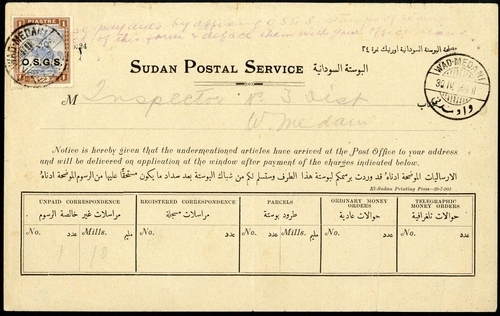 1 PIASTRE 1
O.S.G.S.
WAD-MEDANI
payment by affixing O.S.G.S. stamps
of this form & deface them with your Office
صفحه البوستة السودانية اورنيك نمرة ٢٤
SUDAN POSTAL SERVICE البوستة السودانية
WAD-MEDANI
30 IV
M Inspector No 3 Dist
W. Medani
Notice is hereby given that the undermentioned articles have arrived at the Post Office to your address
and will be delivered on application at the window after payment of the charges indicated below.
الارساليات الموضحة ادناه قد وردت برسمكم وبظهور هذا الطرف وستسلم لكم في شباك البوستة بعد سداد ما يكون مستحقًا عليها من الرسوم الموضحة ادناه
El-Sudan Printing Press—29-7-903
UNPAID CORRESPONDENCE REGISTERED CORRESPONDENCE PARCELS ORDINARY MONEY ORDERS TELEGRAPHIC MONEY ORDERS
مراسلات غير خالصة الرسوم مراسلات مسجلة طرود بوستة حوالات عادية حوالات تلغرافية
No. عدد Mills. مليم No. عدد No. عدد Mills. مليم No. عدد No. عدد
1 10